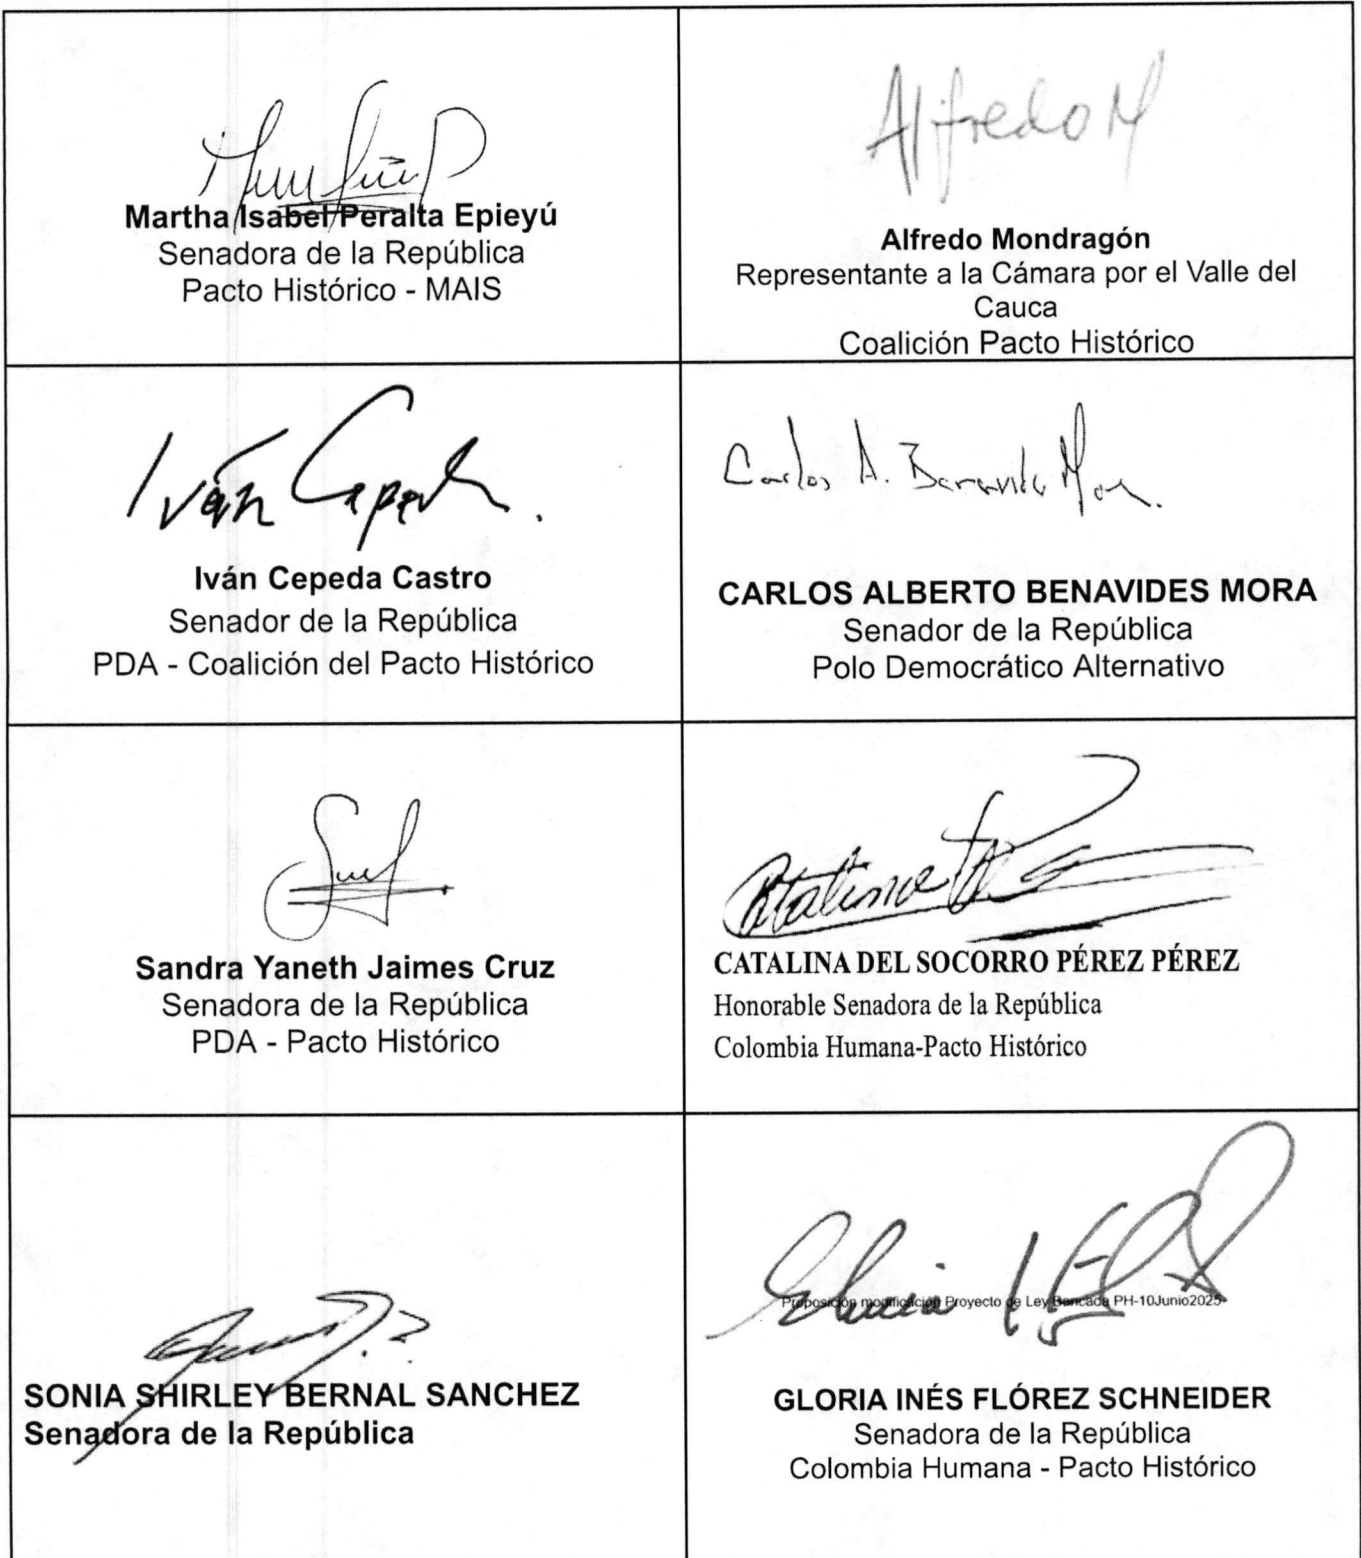 Martha Isabel Peralta Epieyú
Senadora de la República
Pacto Histórico - MAIS
Alfredo M
Alfredo Mondragón
Representante a la Cámara por el Valle del
Cauca
Coalición Pacto Histórico
Iván Cepeda.
Iván Cepeda Castro
Senador de la República
PDA - Coalición del Pacto Histórico
Carlos A. Benavides Mora.
CARLOS ALBERTO BENAVIDES MORA
Senador de la República
Polo Democrático Alternativo
Sandra Yaneth Jaimes Cruz
Senadora de la República
PDA - Pacto Histórico
Catalina
CATALINA DEL SOCORRO PÉREZ PÉREZ
Honorable Senadora de la República
Colombia Humana-Pacto Histórico
SONIA SHIRLEY BERNAL SANCHEZ
Senadora de la República
Proposición modificación Proyecto de Ley Bancada PH-10Junio2025-
GLORIA INÉS FLÓREZ SCHNEIDER
Senadora de la República
Colombia Humana - Pacto Histórico